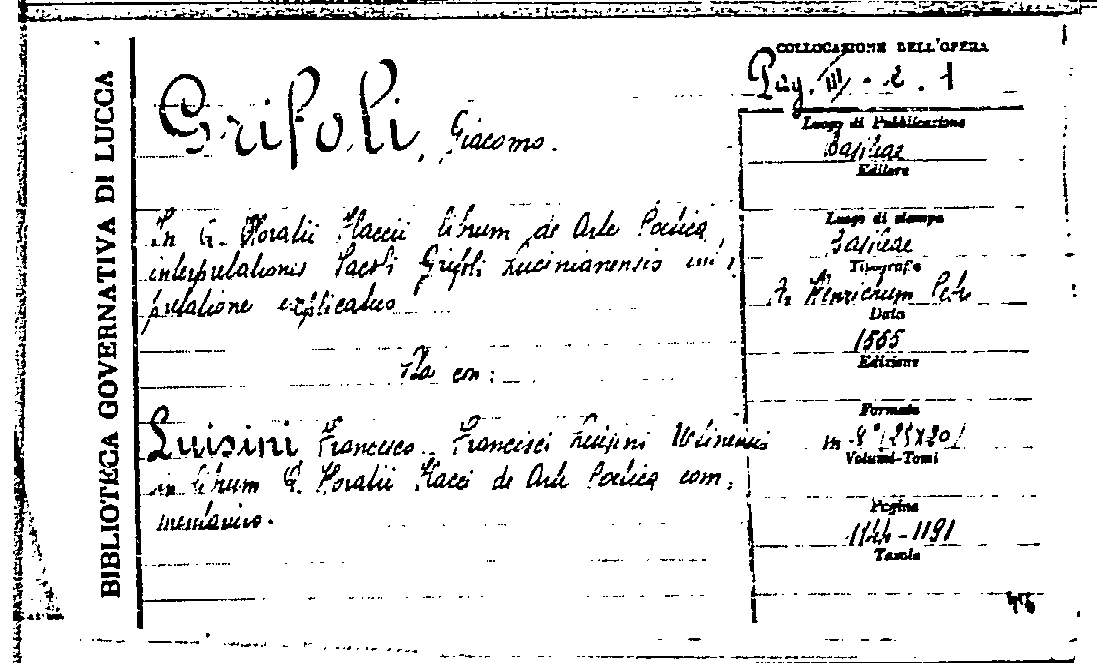 BIBLIOTECA GOVERNATIVA DI LUCCA
Grifoli, Giacomo.
In Q. Horatii Flaccii librum de Arte Poetica,
interpretationis Jacobi Grifoli Lucinianensis
pretatione explicatus
Sta con:
Luisini Francesco. Francisci Luisini Utinensis
in librum Q. Horatii Flacci de Arte Poetica com-
mentarius.
COLLOCAZIONE DELL'OPERA
Pug. III. 2. 1
Luogo di Pubblicazione
Basileae
Editore
Luogo di stampa
Basileae
Tipografo
Henricum Petri
Data
1555
Edizione
Formato
in 8° (25x20)
Volumi-Tomi
Pagine
1144-1191
Tavole